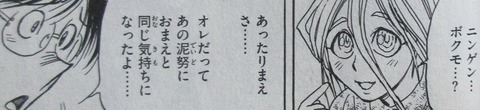 ニンゲン…
ボクモ…?
あったりまえ
さ……
オレだって
あの泥努に
おまえと
同じ気持ちに
なったよ……